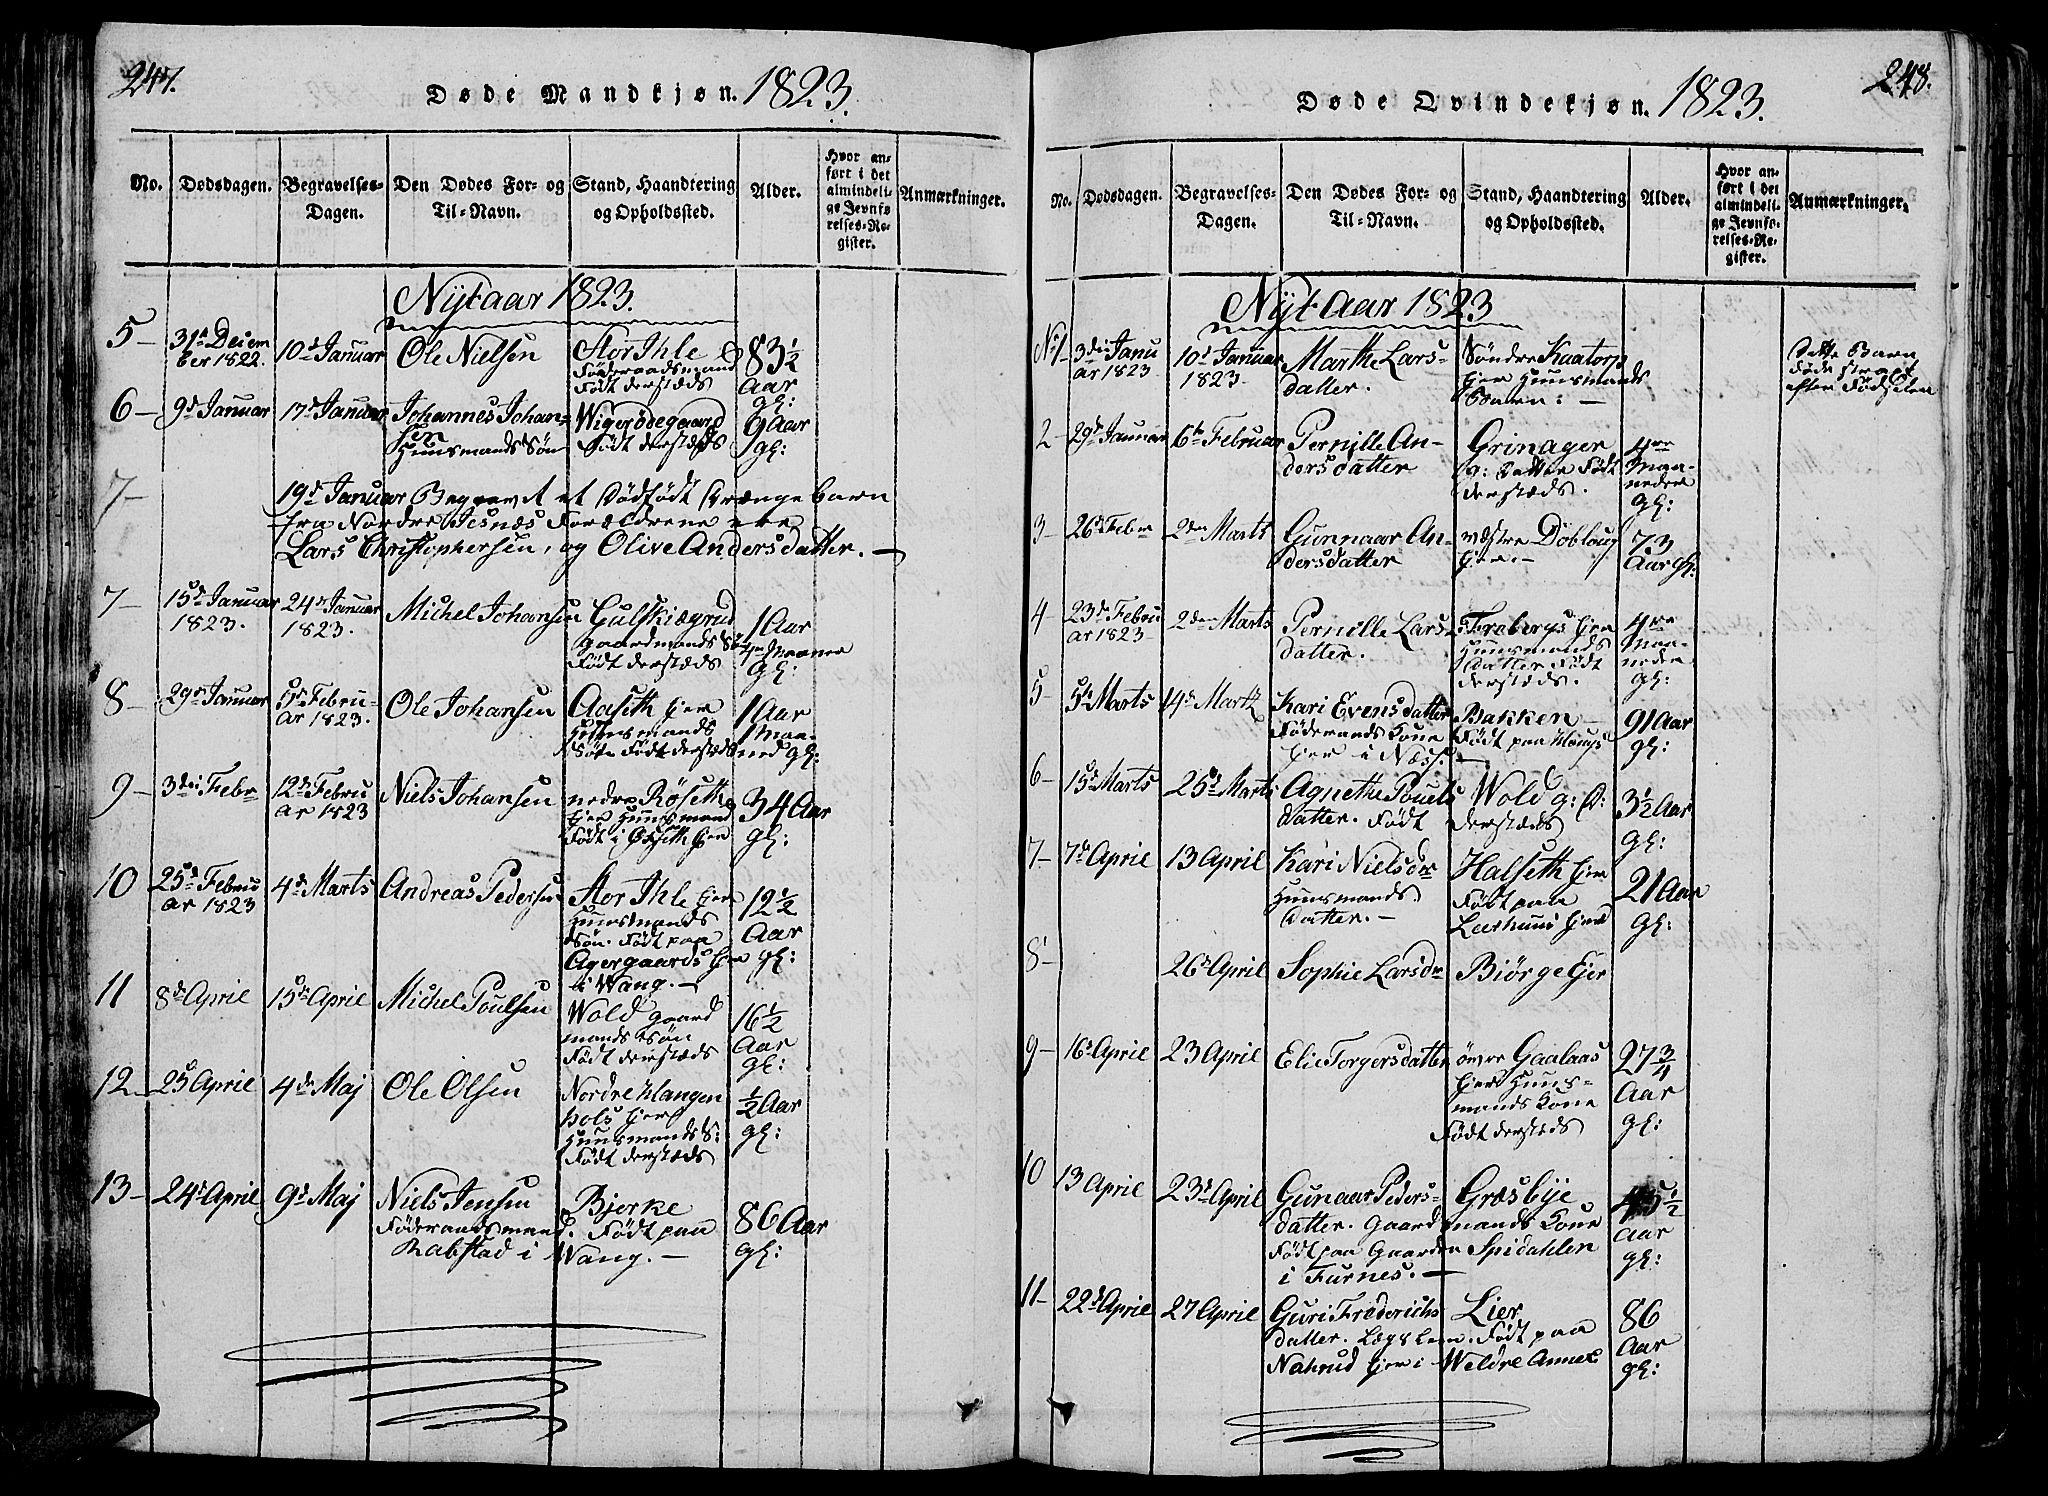 247.
Døde Mandkjøn. 1823.
No.
Dødsdagen.
Begravelses-
Dagen.
Den Dødes For- og
Til-Navn.
Stand, Haandtering
og Opholdssted.
Alder.
Hvor an-
ført i det
almindeli-
ge Jevnfø-
relses-Re-
gister.
Anmærkninger.
Nytaar 1823.
5 -
31d Decem
ber 1822.
10d Januar
Ole Nielsen
Stor Ihle
Föderaadsmand
Födt derstæds
83 1/2
Aar
gl:
6 -
9d Januar
17d Januar
Johannes Johan-
sen
Huusmands Sön
Wigerödegaard
Födt derstæds
9 Aar
gl:
7 -
19d Januar Begravet et Dödfödt Drænge barn
fra Nordre Jesnæs Forældrene ere
Lars Christophersen, og Olive Andersdatter. -
7 -
15d Januar
1823.
24d Januar
1823.
Michel Johansen
Gulskiægrud
gaardmands Sön
Födt derstæds
1 Aar
gl:
8 -
29d Januar
5d Febru-
ar 1823.
Ole Johansen
Aaseth Eier
Huusmands
Sön Födt derstæds
1 Aar
1 Maa-
ned gl:
9 -
3die Febr
12d Febru
ar 1823
Niels Johansen
nedre Röseth
Eier Huusmand
Födt i Eier
34 Aar
gl:
10
25d Febru
ar 1823
4d Marts
Andreas Pedersen
Stor Ihle Eier
Huusmands
Sön. Födt paa
Agergaards Eier
i Wang. -
12 1/2
Aar
gl:
11
8d April
15d April
Michel Poulsen
Wold gaard
mands sön
Födt derstæds
16 1/2
Aar
gl:
12 -
25 April
4de Maj
Ole Olsen
Nordre Hangen
hols Eier
Huusmands S:
Födt derstæds
1/2 Aar
gl:
13 -
24d April
9d Maj
Niels Jensen
Föderaadsmand.
Rabstad i Wang. -
Bjerke
Födt paa
86 Aar
gl:
248.
Døde Qvindekjøn. 1823.
No.
Dødsdagen.
Begravelses-
Dagen.
Den Dødes For- og
Til-Navn.
Stand, Haandtering
og Opholdssted.
Alder.
Hvor an-
ført i det
almindeli-
ge Jevnfø-
relses-Re-
gister.
Anmærkninger.
Nyt Aar 1823
No 1
3die Janu
ar 1823
10d Januar
1823
Marthe Lars-
datter.
Söndre Kaatorp
Eier Huusmands
Barn: -
Dette Barn
döde strax
efter Födselen
2 -
29d Januar
6te Februar
Pernille An-
dersdatter
Grinager
g: Datter Födt
derstæds.
4re
Maa-
neder
gl:
3 -
26d Febr
2den Marts
Gunnaar An-
dersdatter
væstre Döbloug
Eier. -
73
Aar gl:
4
23de Febru
ar 1823
2den Marts
Pernille Lars-
datter.
Frobergs Eier
Huusmands
Datter Födt
derstæds.
4re
Maa-
neder
gl:
5
5te Marts
14d Marts
Kari Evensdatter
Föderaads Kone
Eier i Næss: -
Bakken -
Födt paa
91 Aar
gl:
6 -
15d Marts
25d Marts
Agnethe Pouels
datter. Födt
Wold g: D:
derstæds
3 1/2 Aar
gl:
7 -
7de April
13 April
Kari Nielsdr
Huusmands
Datter. -
Halseth Eier
Födt paa
Eier
21 Aar
gl:
8 -
26d April
Sophie Larsdr
Biörge Eier
9 -
16d April
23 April
Elie Torgersdatter
övre Gaalaas
Eier Huus-
mands Kone
Födt derstæds
27 3/4
Aar
gl:
10
13 April
23d April
Gunaar Peders-
datter. Gaard
Födt paa Gaarden
i Furnes. -
Græsbye
mands Kone
Spidahlen
45 1/2
Aar
gl:
11 -
22d April
27 April
Guri Frederichs
datter. Lægslem.
Nahrud Eier i
Lier
Födt paa
Weldre Annex
86
Aar
gl: